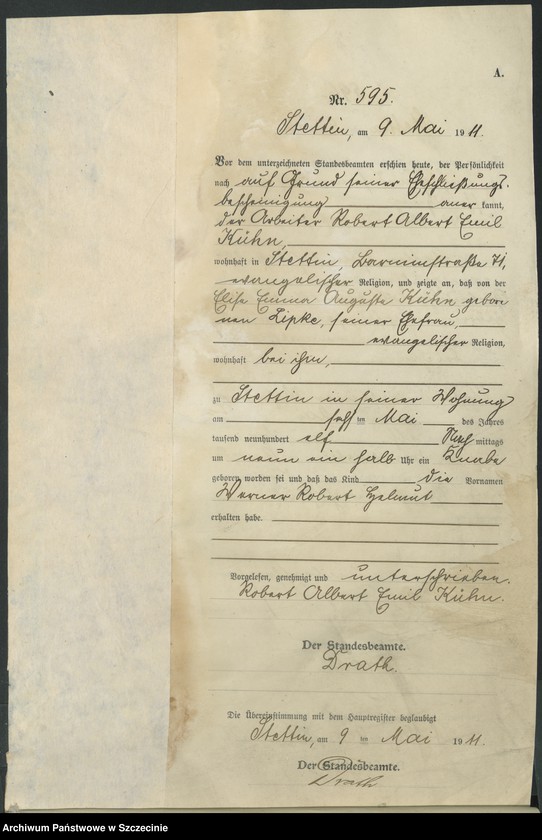 A.
Nr. 595.
Stettin, am 9. Mai 1911.
Vor dem unterzeichneten Standesbeamten erschien heute, der Persönlichkeit
nach auf Grund seiner Eheschließungs-
bescheinigung anerkannt,
der Arbeiter Robert Albert Emil
Kühn,
wohnhaft in Stettin, Barnimstraße 71,
evangelischer Religion, und zeigte an, daß von der
Elise Emma Auguste Kühn gebore
nen Lipke, seiner Ehefrau,
evangelischer Religion,
wohnhaft bei ihm,
zu Stettin in seiner Wohnung
am ten Mai des Jahres
tausend neunhundert elf Nachmittags
um neun ein halb Uhr ein Knabe
geboren worden sei und daß das Kind die Vornamen
Werner Robert Helmut
erhalten habe.
Vorgelesen, genehmigt und unterschrieben.
Robert Albert Emil Kühn.
Der Standesbeamte.
Drath.
Die Übereinstimmung mit dem Hauptregister beglaubigt
Stettin, am 9 ten Mai 1911.
Der Standesbeamte.
Drath
Archiwum Państwowe w Szczecinie